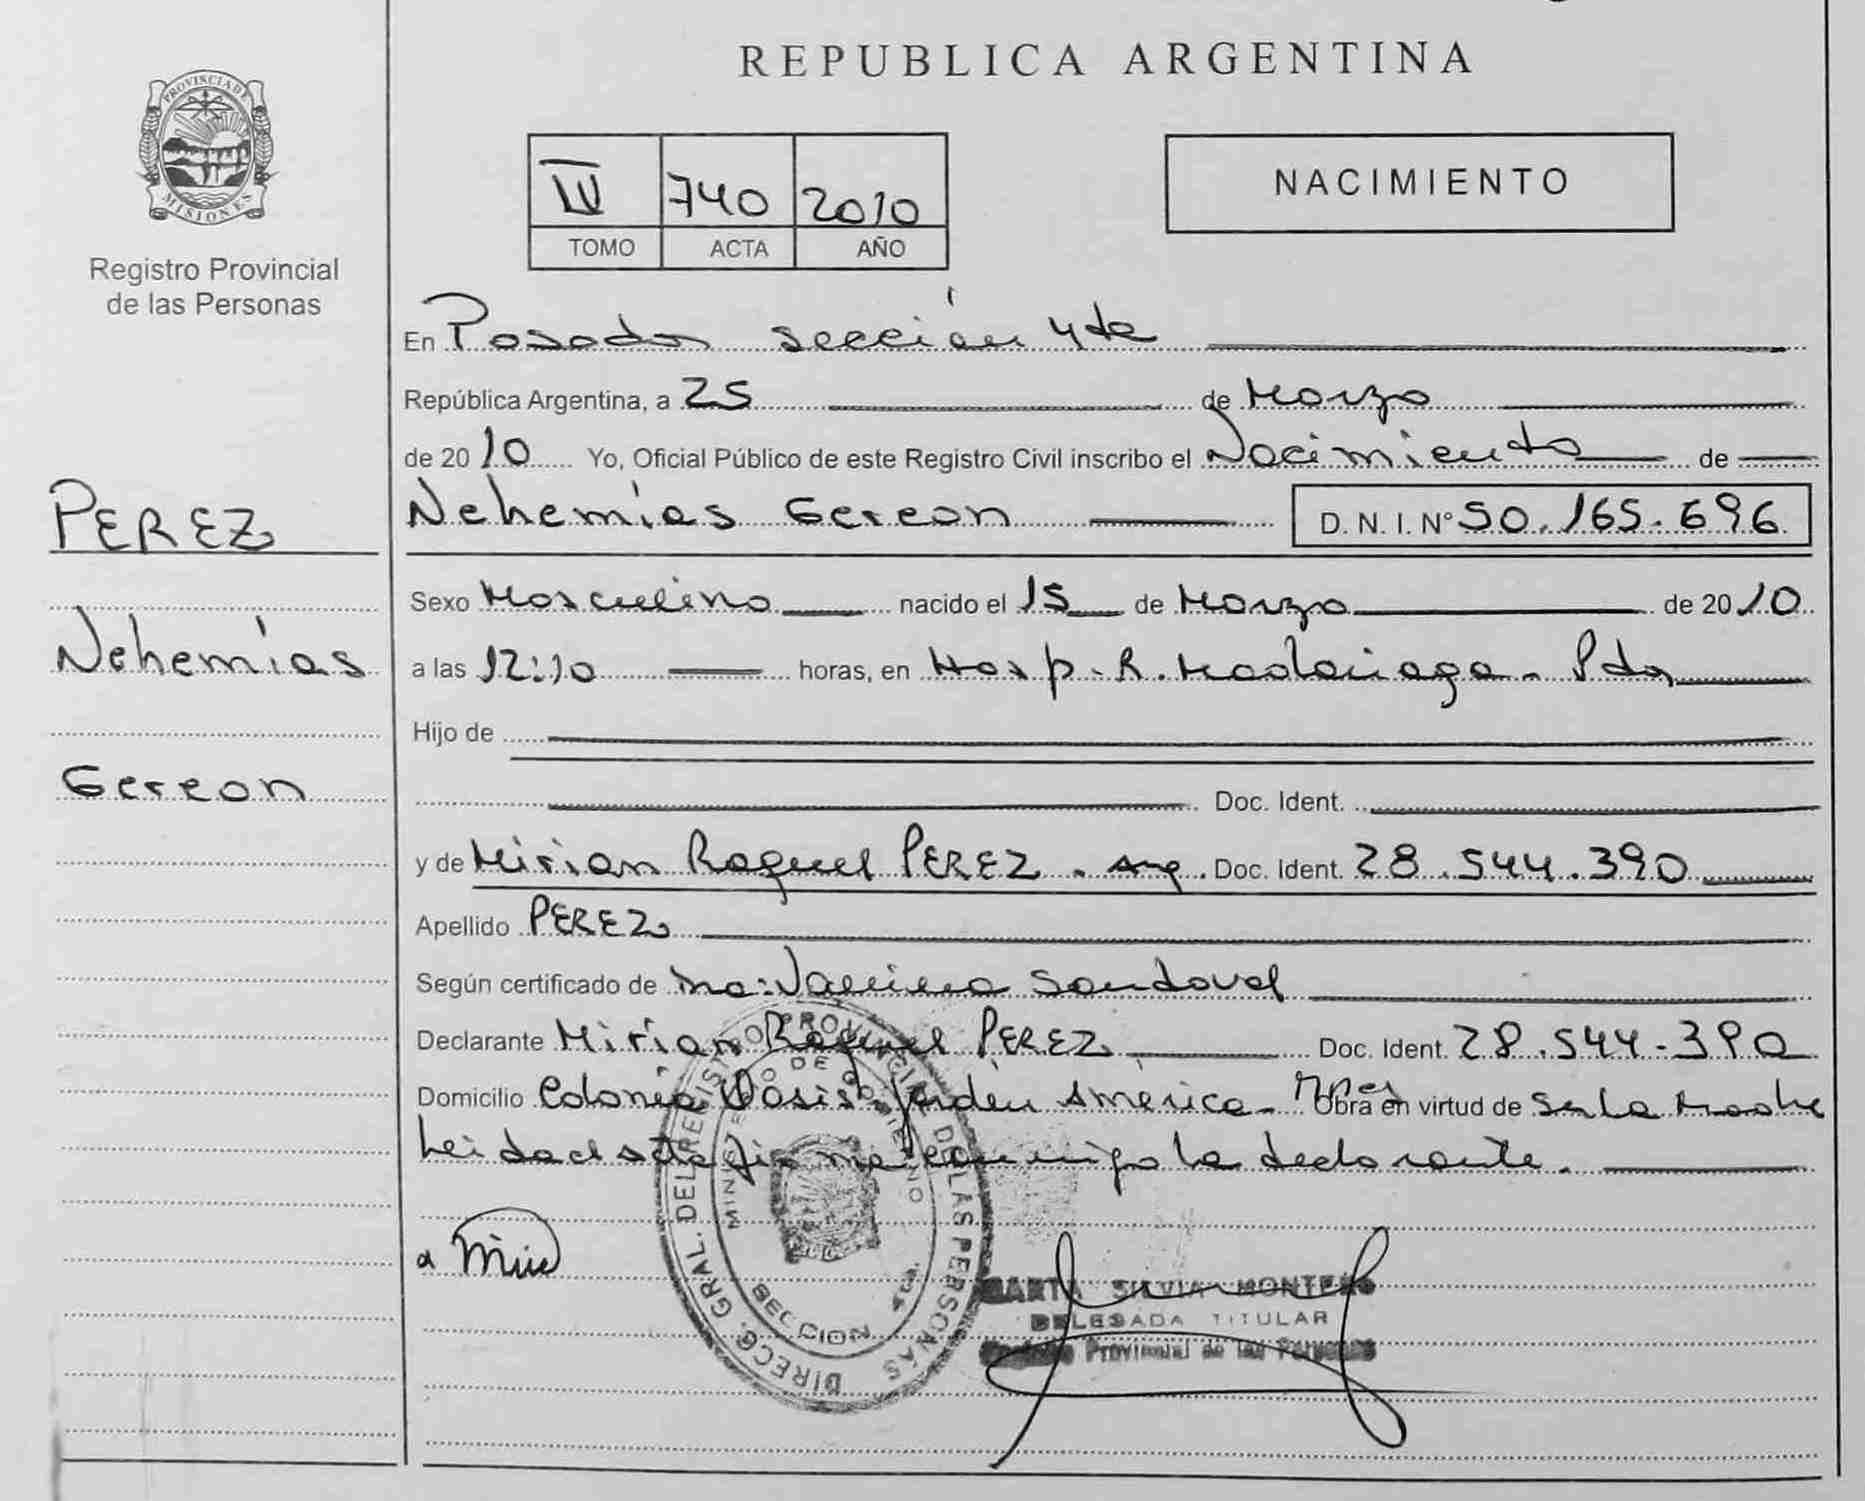 REPUBLICA ARGENTINA
PROVINCIA DE
MISIONES
Registro Provincial
de las Personas
740 2010
TOMO ACTA AÑO
NACIMIENTO
En Posadas sección 4ta
República Argentina, a 25 de Marzo
de 2010 Yo, Oficial Público de este Registro Civil inscribo el Nacimiento de
PEREZ
Nehemías Gereon D.N.I. Nº 50.165.696
Sexo Masculino nacido el 15 de Marzo de 2010
Nehemías
a las 12:10 horas, en Hosp. R. Madariaga - Pdas
Hijo de
Gereon
Doc. Ident.
y de Mirian Raquel PEREZ. Arg. Doc. Ident. 28.544.390
Apellido PEREZ
Según certificado de Sandoval
Declarante Mirian Raquel PEREZ Doc. Ident. 28.544.390
Domicilio Colonia Oasis Jardín América - Mnes Obra en virtud de Ser La Madre
Leida el acta firma conmigo la declarante.
DIRECC. GRAL. DEL REGISTRO PROVINCIAL DE LAS PERSONAS
MINISTERIO DE GOBIERNO
SECCION 4ta.
MARTA SILVIA MONTERO
DELEGADA TITULAR
Registro Provincial de las Personas